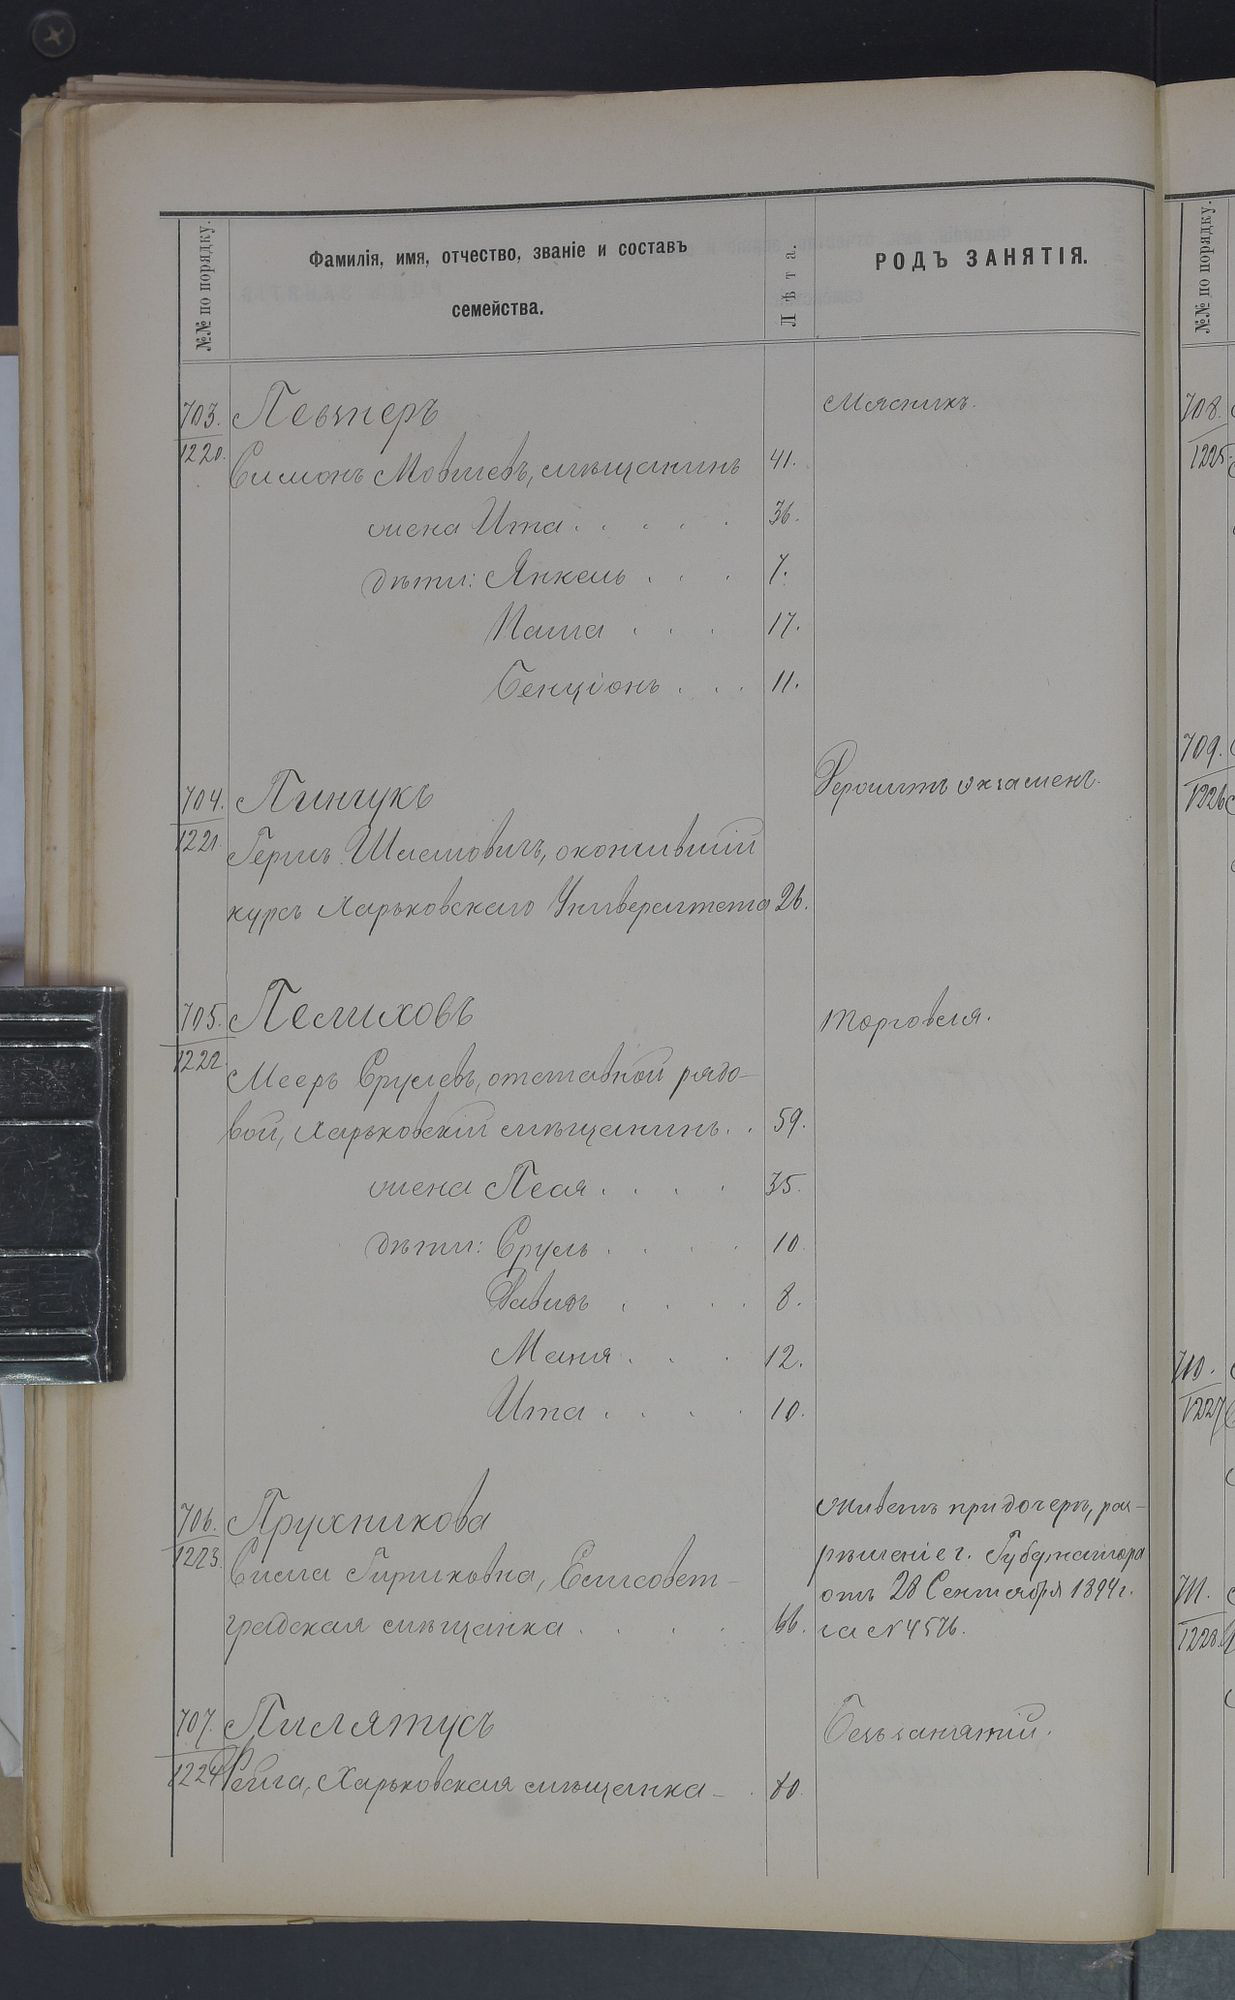 №№ по порядку.
Фамилія, имя, отчество, званіе и составъ
семейства.
Лѣта.
РОДЪ ЗАНЯТІЯ.
703.
1220.
Певзнеръ
Мясникъ.
Симонъ Мовшевъ, мѣщанинъ 41.
жена Ита . . . . . 36.
дѣти: Янкель . . . 7.
Паша . . . 17.
Бенціонъ . . . 11.
704.
1221.
Пинчукъ
Держитъ экзаменъ.
Герцъ Шлемовичъ, окончившій
курсъ Харьковскаго Университета 26.
705.
1222.
Пелиховъ
Торговля.
Мееръ Срулевъ, отставной рядо-
вой, Харьковскій мѣщанинъ . . 59.
жена Песя . . . . 35.
дѣти: Сруль . . . . 10.
Давидъ . . . . 8.
Маня . . . 12.
Ита . . . . 10.
706.
1223.
Пружникова
Сима Гиршковна, Елисавет-
градская мѣщанка . . . . 66.
Живетъ при дочери, раз-
рѣшеніе г. Губернатора
отъ 28 Сентября 1894 г.
за № 4576.
707.
1224.
Пилятусъ
Безъ занятій.
Рейза, Харьковская мѣщанка - . 80.
№№ по порядку.
708.
1225.
709.
1226
710.
1227
711.
1228.